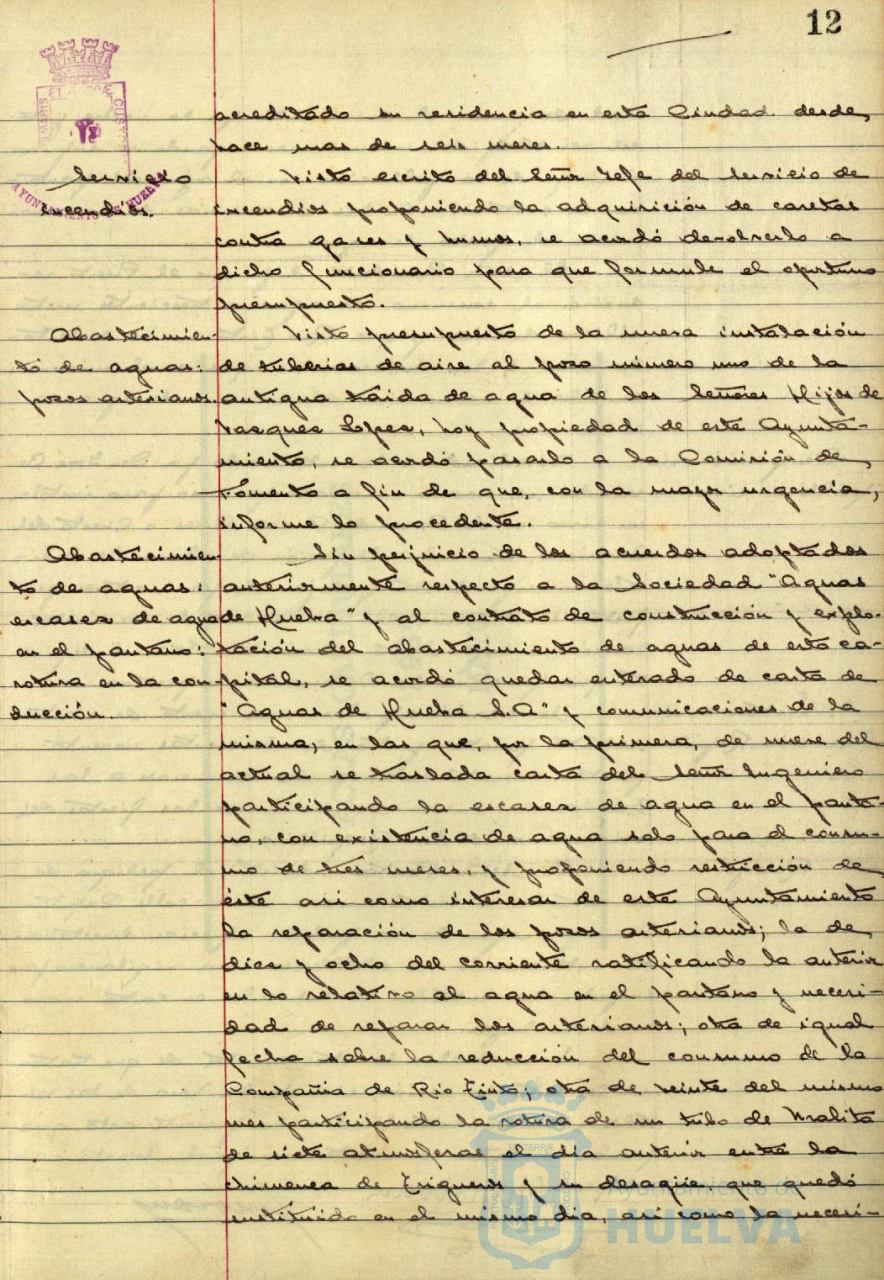 12
acreditado su residencia en esta Ciudad desde,
hace mas de seis meses.
Servicio
incendios.
Visto escrito del Señor Jefe del Servicio de
incendios proponiendo la adquisición de caretas
contra gases y humos, se acordó devolverlo a
dicho funcionario para que formule el oportuno
presupuesto.
Abastecimien-
to de aguas:
pozos artesianos.
Visto presupuesto de la nueva instalación
de tuberias de aire al pozo número uno de la
antigua traida de agua de los Señores Hijos de
Vazquez Lopez, hoy propiedad de este Ayunta-
miento, se acordó pasarlo a la Comisión de,
Fomento a fin de que, con la mayor urgencia,
informe lo procedente.
Abastecimien-
to de aguas:
escasez de agua
en el pantano:
rotura en la con-
ducción.
Sin perjuicio de los acuerdos adoptados
anteriormente respecto a la Sociedad "Aguas
de Huelva" y al contrato de construcción y explo-
tación del abastecimiento de aguas de esta ca-
pital, se acordó quedar enterado de carta de
"Aguas de Huelva S.A" y comunicaciones de la
misma, en las que, por la primera, de nueve del
actual se traslada carta del Señor Ingeniero
participando la escasez de agua en el panta-
no, con existencia de agua solo para el consu-
mo de tres meses, y proponiendo restricción de
éste asi como interesar de este Ayuntamiento
la reparación de los pozos artesianos; la de,
diez y ocho del corriente ratificando la anterior
en lo relativo al agua en el pantano y necesi-
dad de reparar los artesianos; otra de igual
fecha sobre la reducción del consumo de la
Compañia de Rio Tinto; otra de veinte del mismo
mes participando la rotura de un tubo de Uralita
de siete atmosferas el dia anterior entre la
chimenea de Trigueros y su desagüe, que quedó
sustituido en el mismo dia, asi como la necesi-
AYUNTAMIENTO DE HUELVA
Ayuntamiento de
HUELVA